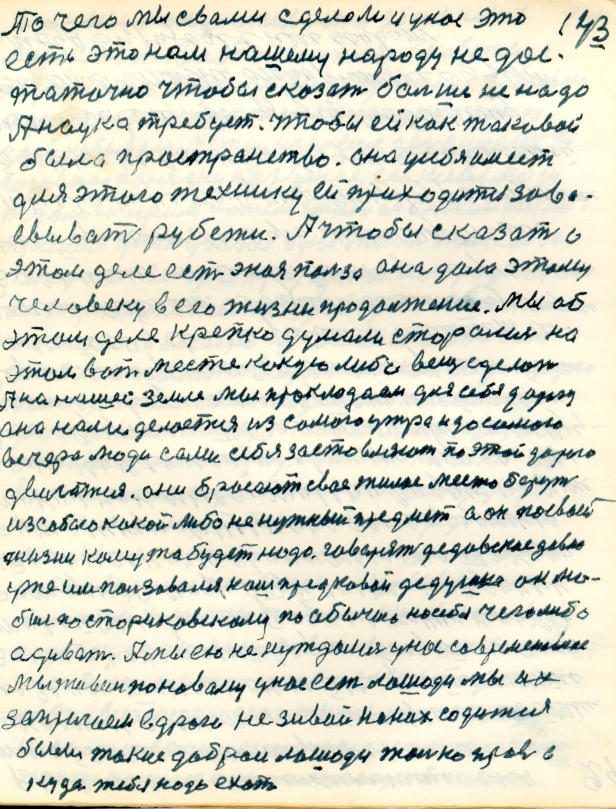 То чего мы свами сделоли унос это
143
есть это нам нашему народу не дос-
таточно чтобы сказат болше не надо
А наука требует. чтобы ей как таковой
было пространство. она усебя имеет
для этого технику ей приходится заво-
евыват рубежи. А чтобы сказат о
этом деле ест эная полза она дала этому
человеку в его жизни продолжение. мы об
этом деле крепко думали сторолися на
этом вот месте какую либо вещ сделат
А на нашей земле мы проклодаем для себя дорогу
она нами делается из самого утра и до самого
вечера люди сами себя застовляют по этой дороге
двигатся. они бросают свое жилое место берут
из собою какой либо не нужный предмет а он по своей
жизни кому та будет надо. говорят дедовское давно
уже им ползовался наш предковой дедушка он лю-
бил по сториковскому по обычаю на себя чего либо
адиват. А мы ею не нуждаемся у нас современное
мы живем по новаму у нас ест лошоди мы их
запрягаем в дрога не зивай на них содится
были такие добрые лошоди толко прав а
куда тебе надо ехат